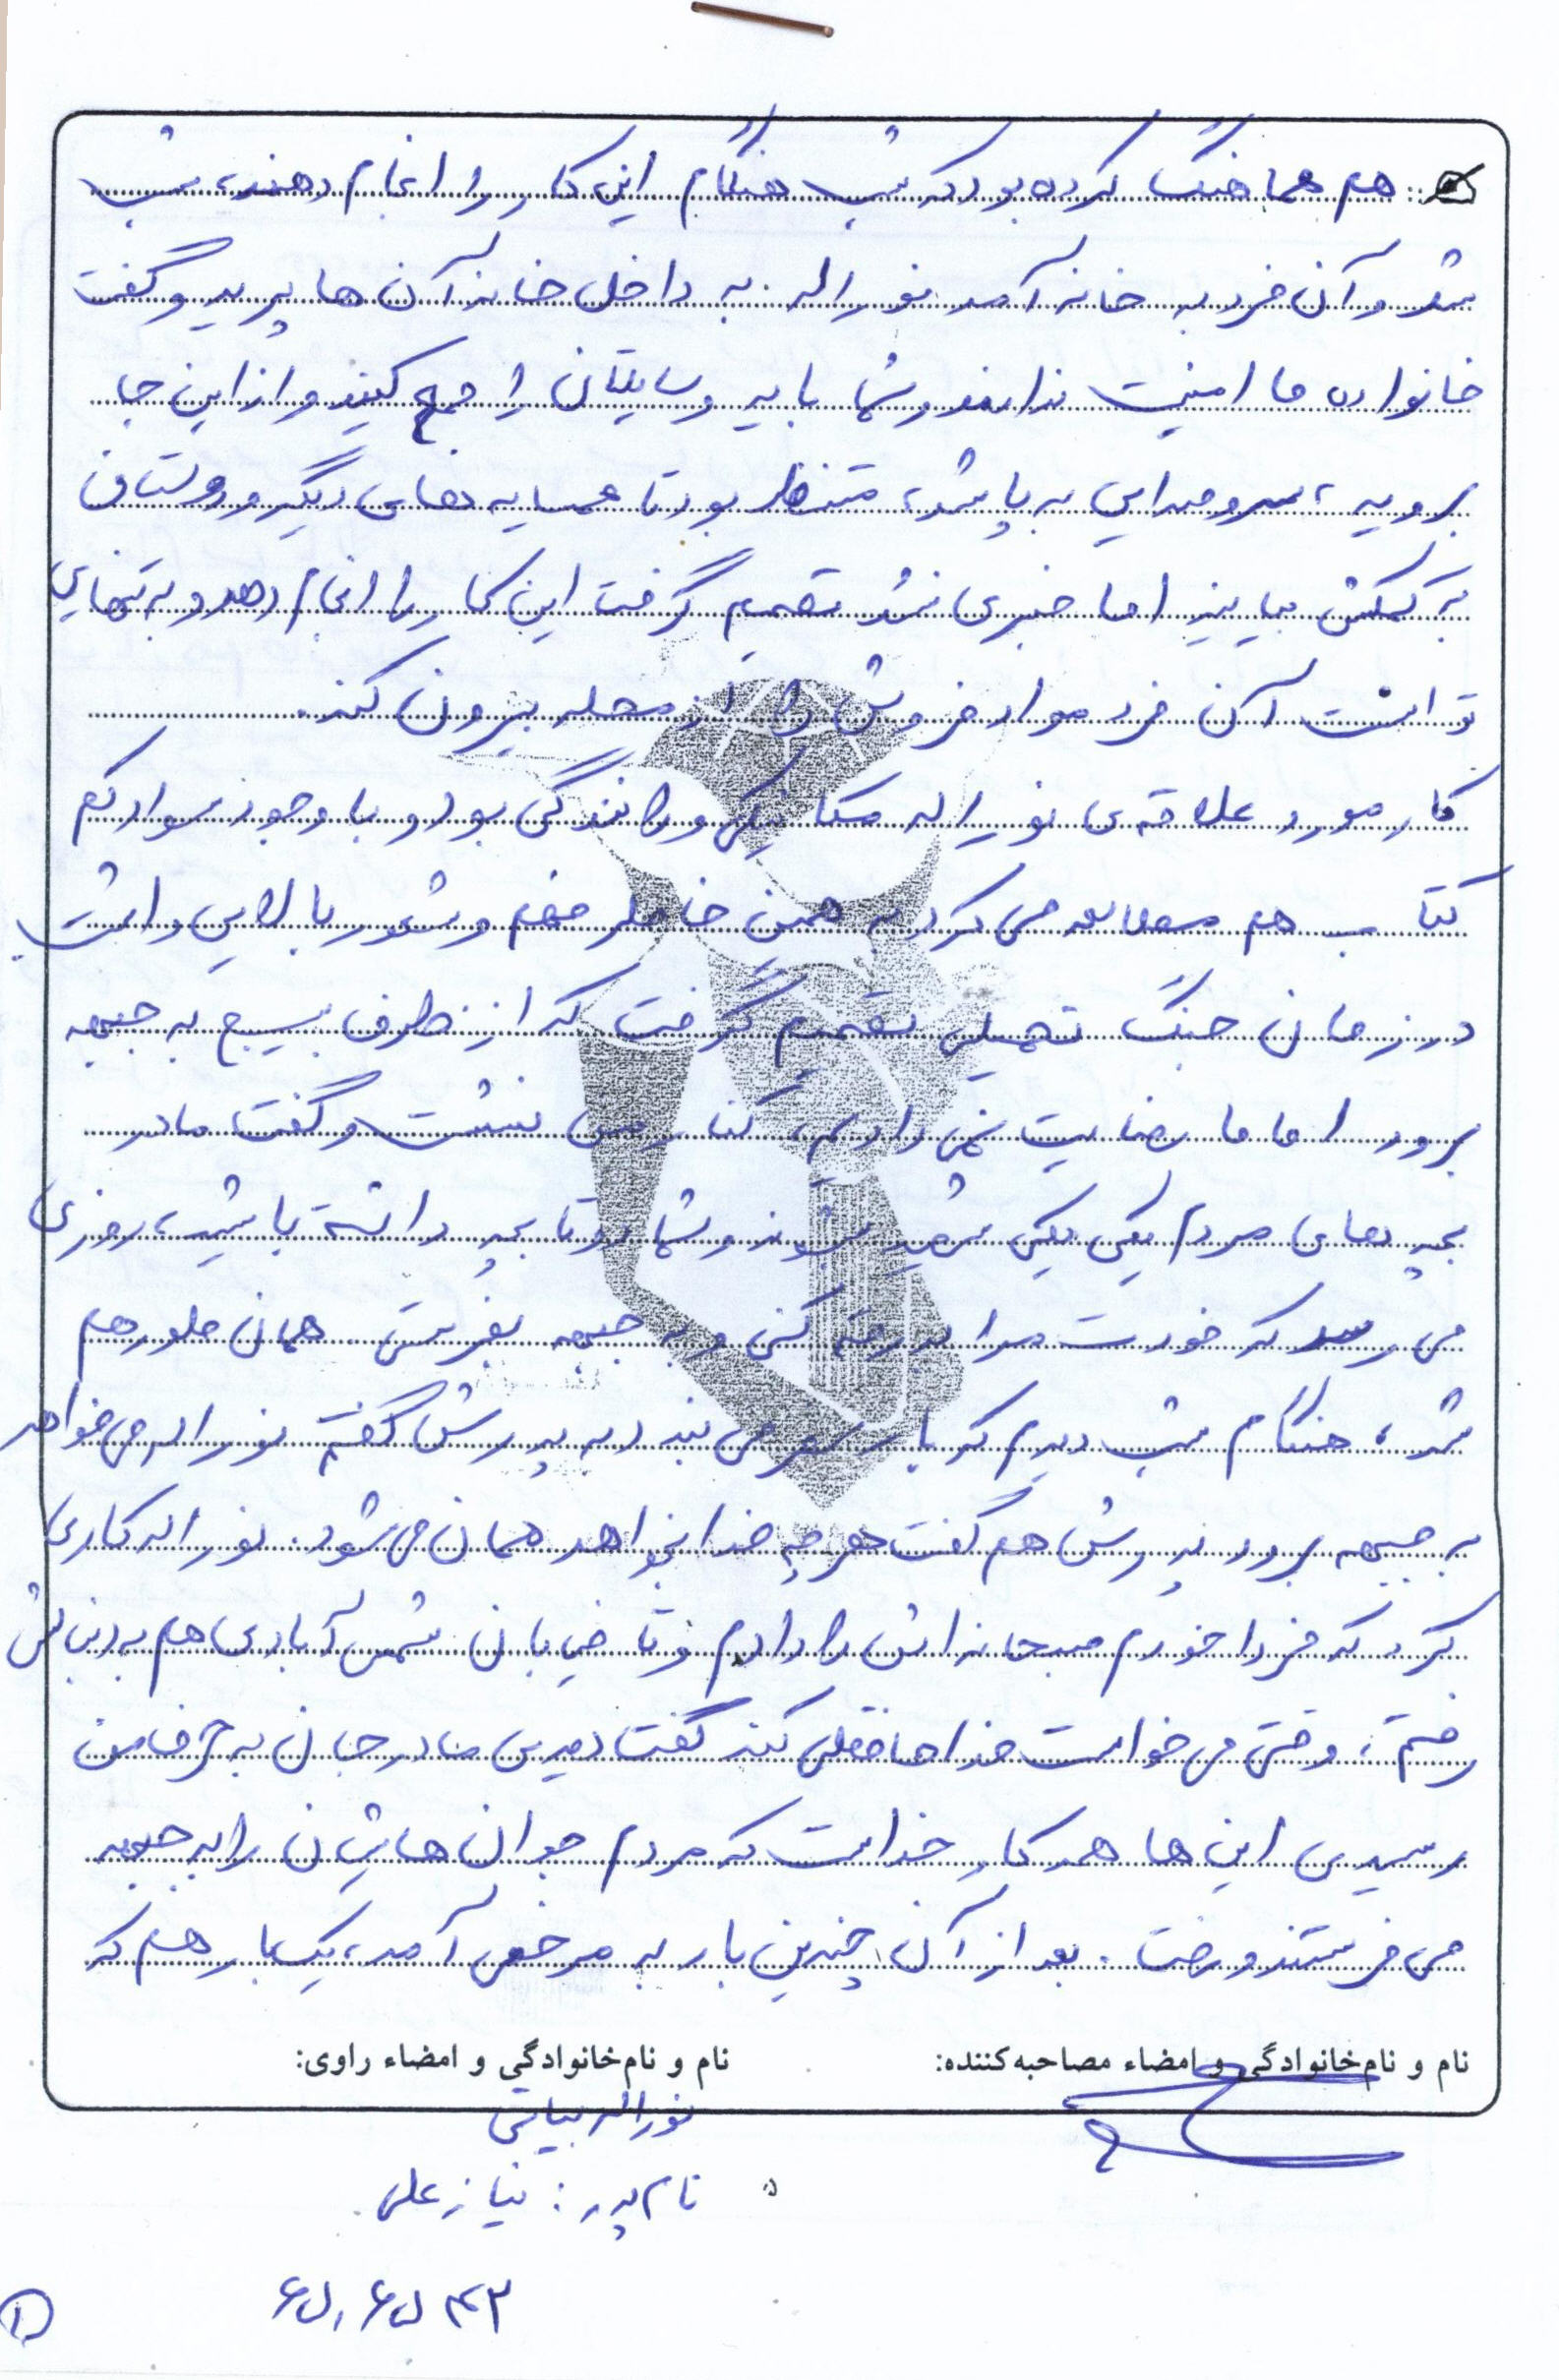 هم هماهنگ کرده بود که شب هنگام این کار را انجام دهند، شب
شد و آن فرد به خانه آمد نوراله به داخل خانه آن ها پرید و گفت
خانواده ما امنیت ندارند و شما باید وسایلتان را جمع کنید و از این جا
بروید، سر و صدایی به پا شد، منتظر بود تا همسایه های دیگر و دوستان
به کمکش بیایند اما خبری نشد تصمیم گرفت این کار را انجام دهد و به تنهایی
توانست آن فرد مواد فروش را از محله بیرون کند.
کار مورد علاقه ی نوراله مکانیکی و رانندگی بود و با وجود سواد کم
کتاب هم مطالعه می کرد به همین خاطر فهم و شعور بالایی داشت
در زمان جنگ تحمیلی تصمیم گرفت که از طرف بسیج به جبهه
برود اما ما رضایت نمی دادیم، کنار من نشست و گفت مادر
بچه های مردم یکی یکی شهید بشوند و شما دوتا بچه داشته باشید، روزی
می رسد که خودت مرا بدرقه کنی و به جبهه بفرستی همان طور هم
شد، هنگام شب دیدم که بار سفر می بندد به پدرش گفتم نوراله می خواهد
به جبهه برود پدرش هم گفت هرچه خدا بخواهد همان می شود. نوراله کاری
کرد که فردا خودم صبحانه اش را دادم و تا خیابان شمس آبادی هم به دنبالش
رفتم، وقتی می خواست خداحافظی کند گفت دیدی مادر جان به حرف من
رسیدی این ها همه کار خداست که مردم جوان هایشان را به جبهه
می فرستند و رفت. بعد از آن چندین بار به مرخصی آمد، یک بار هم که
نام و نام‌خانوادگی و امضاء مصاحبه‌کننده:
نام و نام‌خانوادگی و امضاء راوی:
نوراله بیاتی
نام پدر: نیاز علی